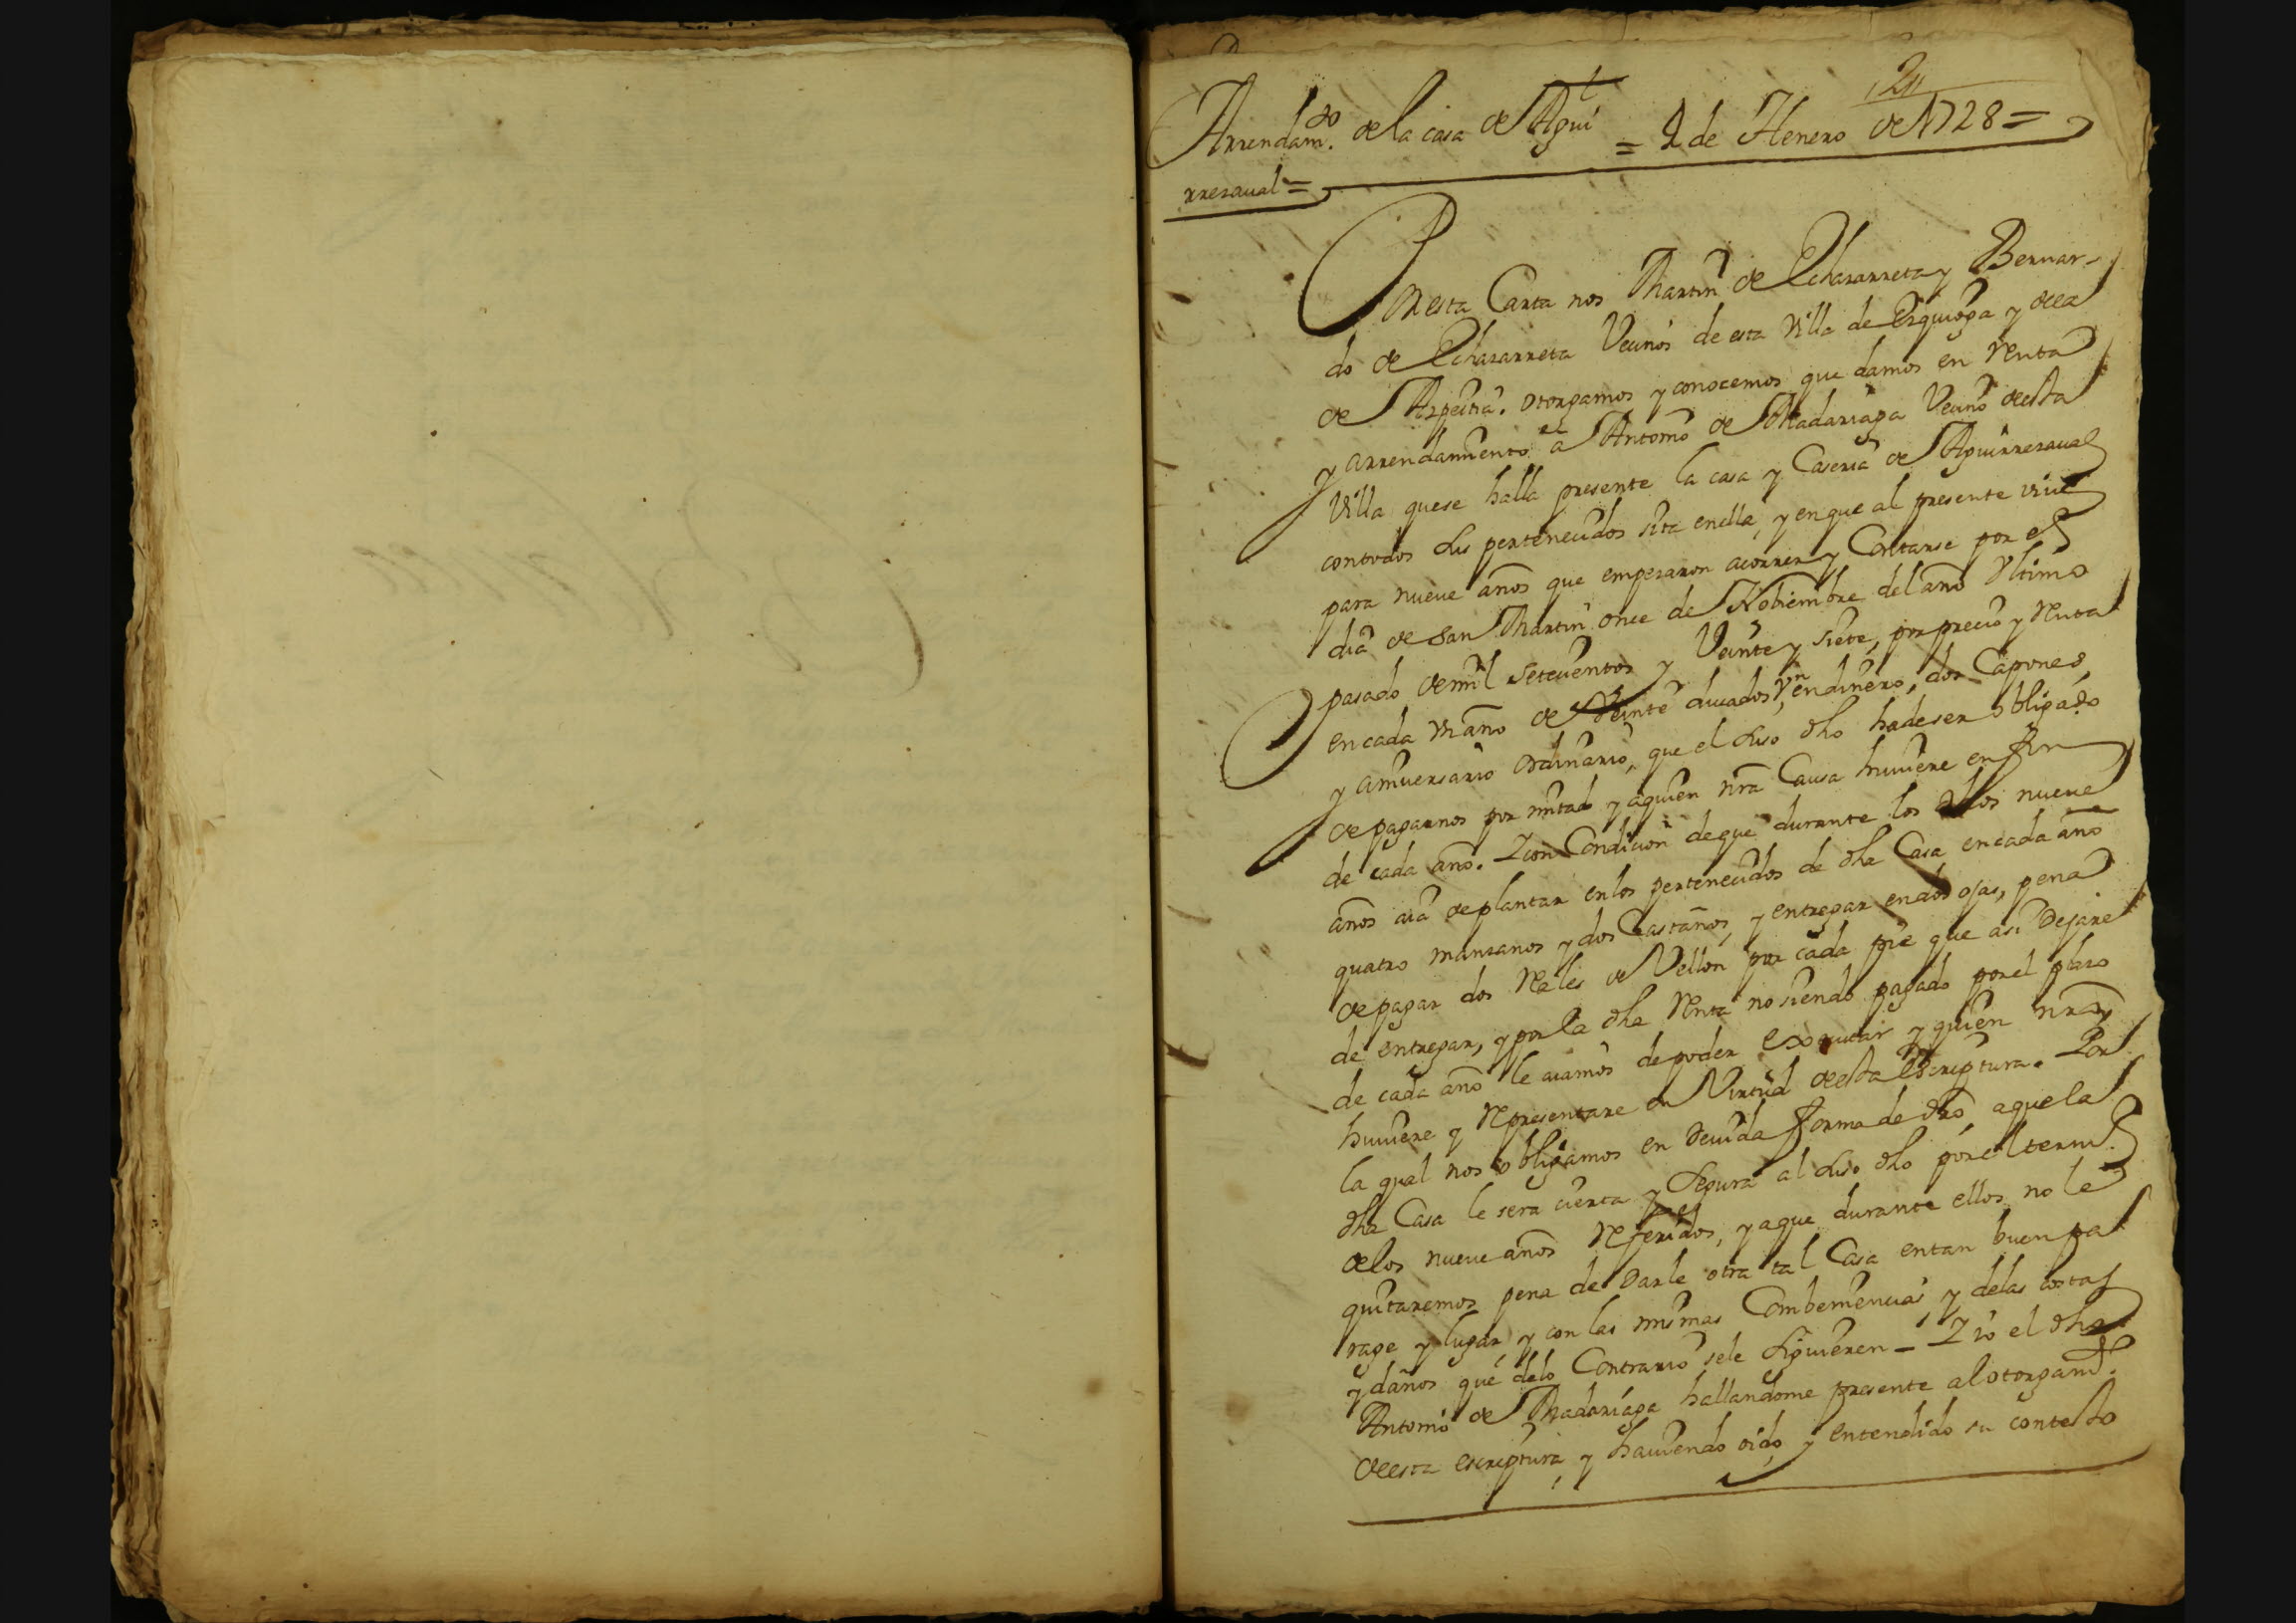 Arrendam.to de la casa de Agui = 2 de Henero de 1728 =
rrezaual =
Por esta Carta nos Martin de Echazarreta y Bernar-
do de Echazarreta Vecinos de esta Villa de Ezquioga y de la
de Azpeitia. otorgamos y conocemos que damos en Renta
y arrendamiento a Antonio de Madariaga Vecino desta
Villa quese halla presente la casa y Caseria de Aguirrezaual
contodos sus pertenecidos sita enella, y enque al presente viue
para nueve años que empezaron acorrer y Contarse por el
dia de San Martin once de Nobiembre del año Vltimo
pasado de mil setecientos y Veinte y siete, por precio y Renta
en cada Vn año de Veinte ducados Vn endinero, dos Capones,
y aniuersario ordinario, que el suso dho hadeser obligado
de pagarnos por mitad y aquien nra Causa huuiere en fin
de cada año. Y con Condicion deque durante los dhos nueve
años aia de plantar enlos pertenecidos de dha Casa encada año
quatro manzanos y dos Castaños, y entregar endos ojas, pena
de pagar dos Rales de Vellon por cada pie que asi Dejare
de entregar, y por la dha Renta no siendo pagado porel plazo
de cada año le aiamos depoder executar y quien nra
huuiere y Representare en Virtud desta Escriptura. Por
la qual nos obligamos en Deuida forma de dro, aque la
dha Casa le sera cierta y Segura al suso dho por el term.o
delos nueve años Referidos, y aque durante ellos no le
quitaremos pena de Darle otra tal Casa entan buen pa
rage y lugar y con las mismas Combeniencias y delas costas
y daños que delo Contrario sele siguieren - Y io el dho
Antonio de Madariaga hallandome presente al otorgam.to
deesta escriptura y hauiendo oido, y entendido su contesto